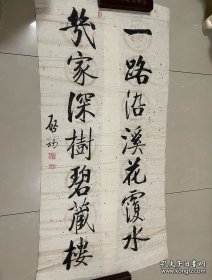 一路沿溪花覆水
幾家深樹碧藏樓
啓功